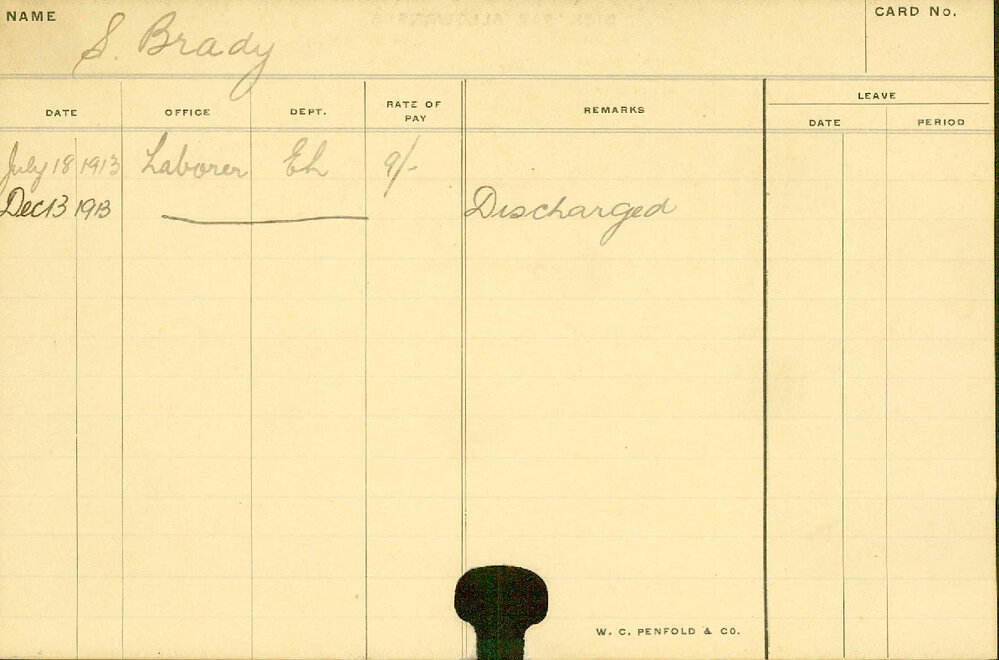 NAME
S. Brady
CARD No.
DATE OFFICE DEPT. RATE OF PAY REMARKS LEAVE
DATE PERIOD
July 18 1913 Laborer 9/-
Dec 13 1913 Discharged
W. C. PENFOLD & CO.